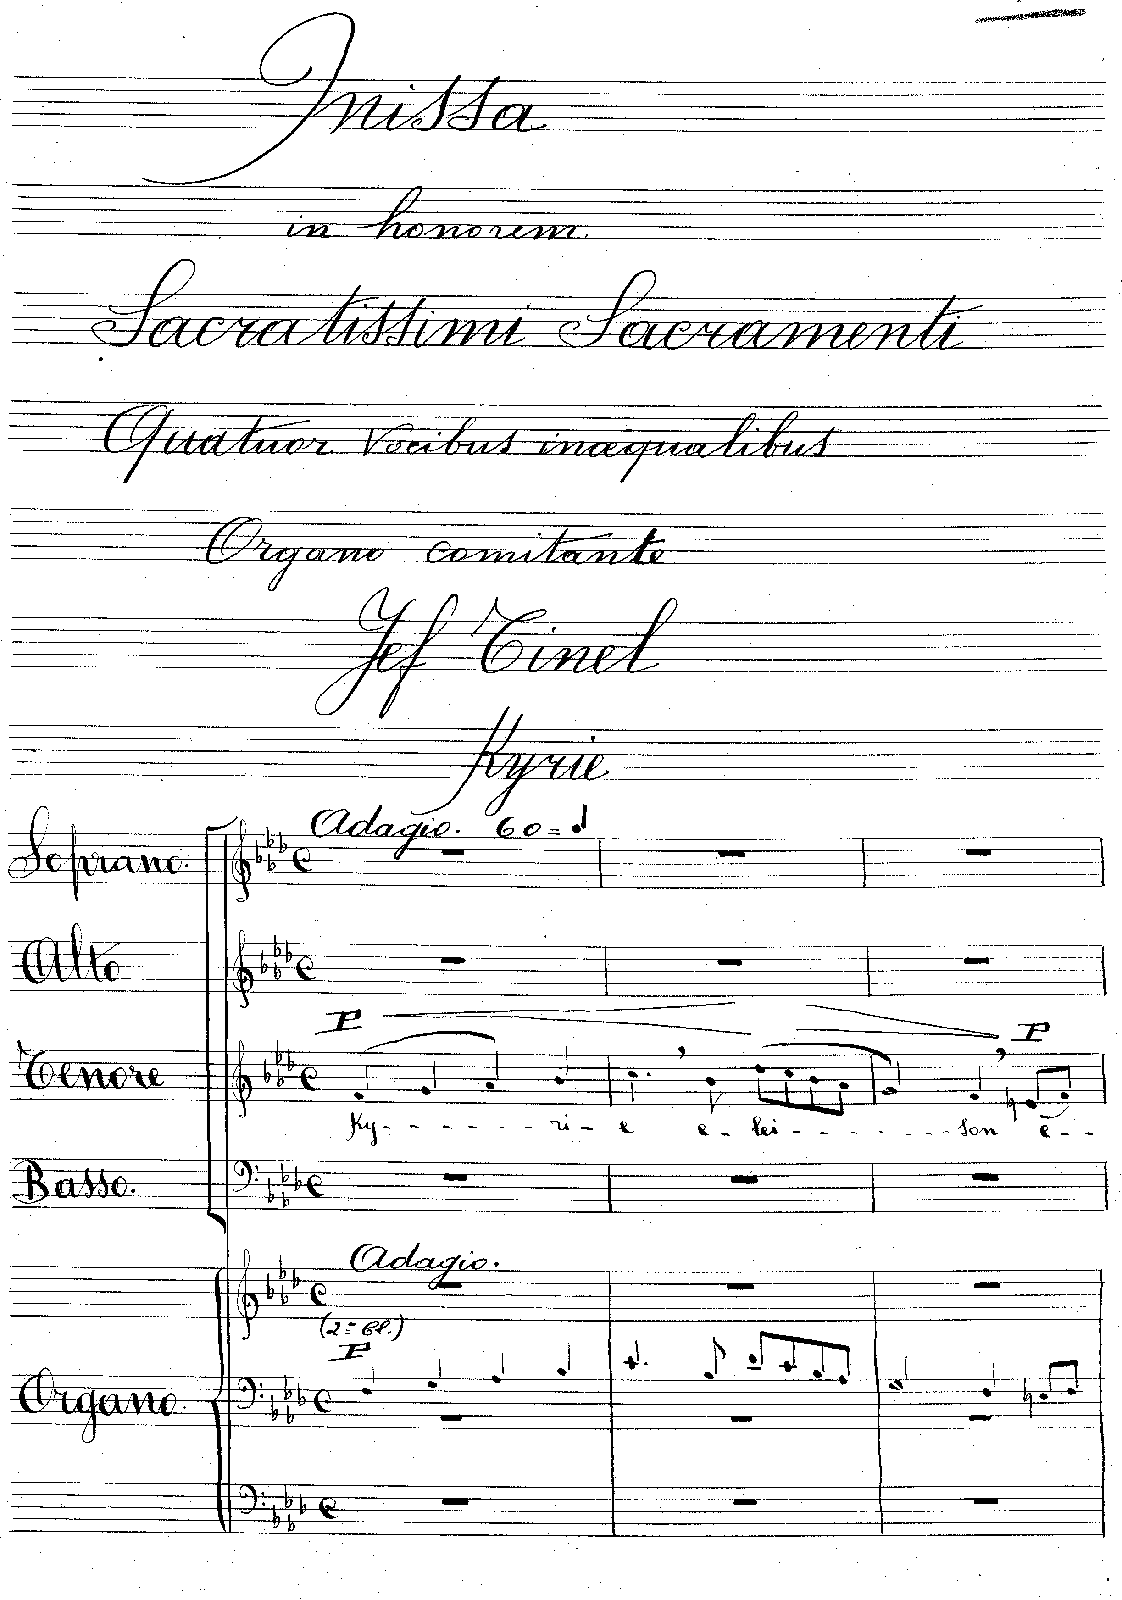 Missa
in honorem
Sacratissimi Sacramenti
Quatuor vocibus inæqualibus
Organo comitante
Jef Tinel
Kyrie
Adagio. 60 =
Soprano.
Alto
P P
Tenore
Ky- - - - - - - ri- e e- lei- - - - - - - - - son e- -
Basso.
Adagio.
P
Organo.